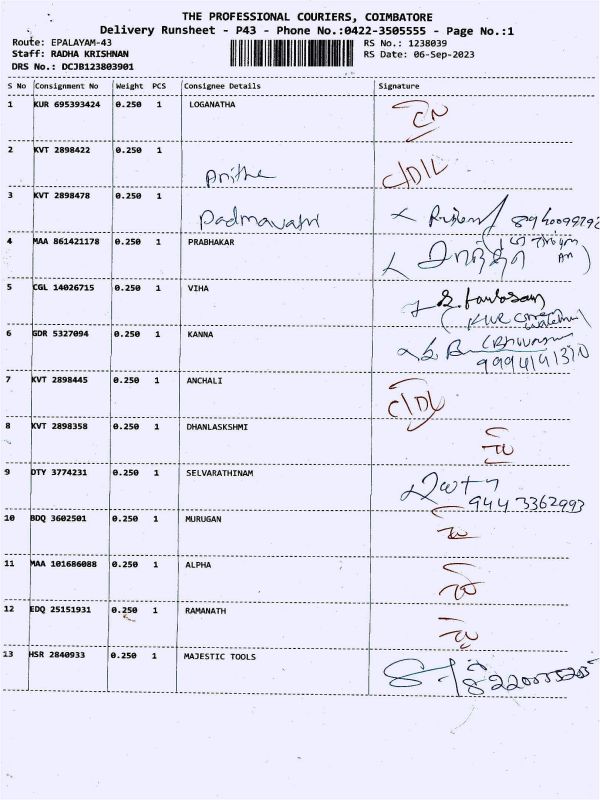 THE PROFESSIONAL COURIERS, COIMBATORE
Delivery Runsheet - P43 - Phone No.:0422-3505555 - Page No.:1
Route: EPALAYAM-43 RS No.: 1238039
Staff: RADHA KRISHNAN RS Date: 06-Sep-2023
DRS No.: DCJB123803901
S No Consignment No Weight PCS Consignee Details Signature
1 KUR 695393424 0.250 1 LOGANATHA
2 KVT 2898422 0.250 1
Anitha
3 KVT 2898478 0.250 1
Padmavathi
4 MAA 861421178 0.250 1 PRABHAKAR
5 CGL 14026715 0.250 1 VIHA
6 GDR 5327094 0.250 1 KANNA
9994191370
7 KVT 2898445 0.250 1 ANCHALI
8 KVT 2898358 0.250 1 DHANLASKSHMI
9 DTY 3774231 0.250 1 SELVARATHINAM
9443362993
10 BDQ 3602501 0.250 1 MURUGAN
11 MAA 101686088 0.250 1 ALPHA
12 EDQ 25151931 0.250 1 RAMANATH
13 HSR 2840933 0.250 1 MAJESTIC TOOLS